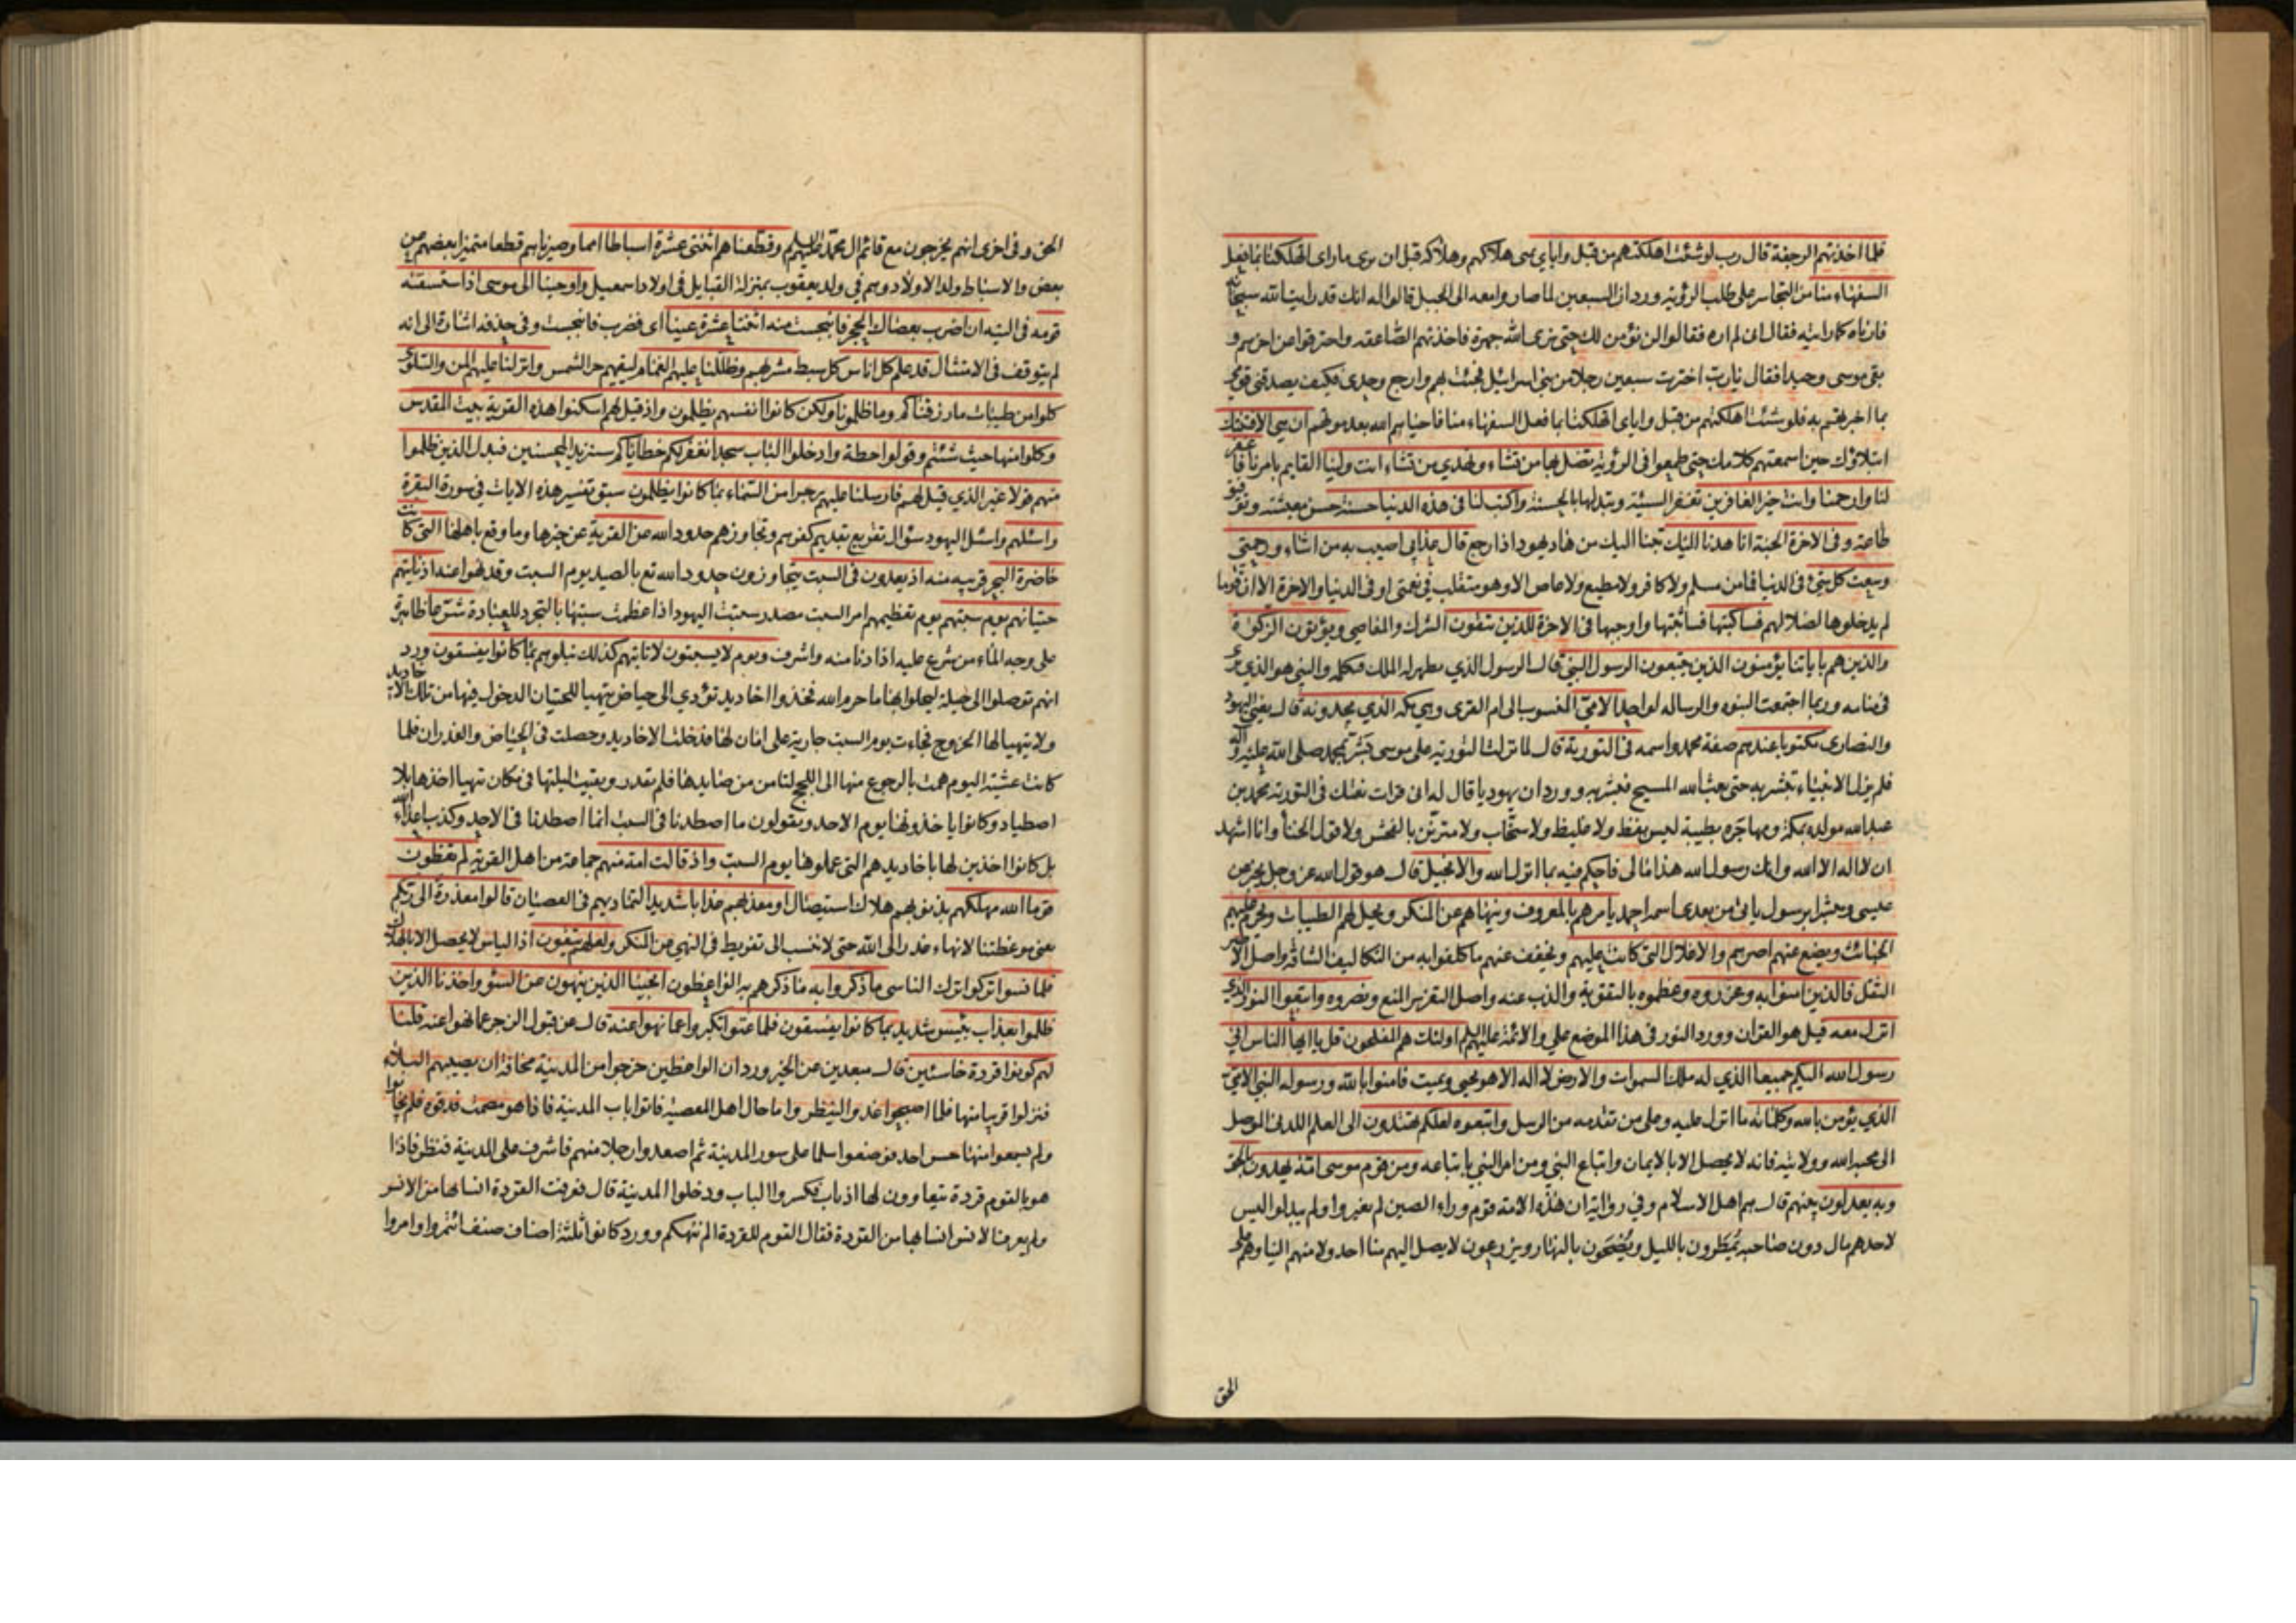 فلما اخذتهم الرجفة قال رب لو شئت اهلكتهم من قبل واياي تمنى هلاكهم وهلاكه قبل ان يرى ما راى اتهلكنا بما فعل
السفهاء منا من التجاسر على طلب الرؤية ورد ان السبعين لما صاروا معه الى الجبل قالوا له انك قد رايت الله سبحانه
فارناه كما رايته فقال انى لم اره فقالوا لن نؤمن لك حتى نرى الله جهرة فاخذتهم الصاعقة واحترقوا من اخرهم و
بقى موسى وحيدا فقال يا رب اخترت سبعين رجلا من بني اسرائيل فجئت بهم وارجع وحدى فكيف يصدقنى قومى
بما اخبرهم به فلو شئت اهلكتهم من قبل واياى اتهلكنا بما فعل السفهاء منا فاحياهم الله بعد موتهم ان هي الا فتنتك
ابتلاؤك حين اسمعتهم كلامك حتى طمعوا فى الرؤية تضل بها من تشاء وتهدي من تشاء انت ولينا القايم بامرنا فاغفر
لنا وارحمنا وانت خير الغافرين تغفر السيئة وتبدلها بالحسنة واكتب لنا فى هذه الدنيا حسنة حسن معيشة وتوفيق
طاعة وفى الاخرة الجنة انا هدنا اليك تبنا اليك من هاد يهود اذا رجع قال عذابى اصيب به من اشاء ورحمتى
وسعت كل شئ فى الدنيا فما من مسلم ولا كافر ولا مطيع ولا عاص الا وهو متقلب فى نعمتى او فى الدنيا والاخرة الا ان قوما
لم يدخلوها لضلالهم فساكتبها فساثبتها واوجبها فى الاخرة للذين يتقون الشرك والمعاصى ويؤتون الزكوة
والذين هم باياتنا يؤمنون الذين يتبعون الرسول النبي قال الرسول الذي يظهر له الملك فيكلمه والنبي هو الذي يرى
فى منامه وربما اجتمعت النبوة والرسالة لواحد الامى المنسوب الى ام القرى وهي مكة الذي يجدونه قال يعنى اليهود
والنصارى مكتوبا عندهم صفة محمد واسمه فى التورية قال لما نزلت التورية على موسى بشر بمحمد صلى الله عليه واله
فلم يزل الانبياء تبشر به حتى بعث الله المسيح فبشر به وورد ان يهوديا قال له انى قرات نعتك فى التورية محمد بن
عبد الله مولده بمكة ومهاجره بطيبة ليس بفظ ولا غليظ ولا سخاب ولا متزين بالفحش ولا قول الخنا وانا اشهد
ان لا اله الا الله وانك رسول الله هذا مالى فاحكم فيه بما انزل الله والانجيل قال هو قول الله عز وجل يخبر عن
عيسى ومبشرا برسول ياتى من بعدى اسمه احمد يامرهم بالمعروف وينهاهم عن المنكر ويحل لهم الطيبات ويحرم عليهم
الخبائث ويضع عنهم اصرهم والاغلال التى كانت عليهم ويخفف عنهم ما كلفوا به من التكاليف الشاقة واصل الاصر
الثقل فالذين امنوا به وعزروه وعظموه بالتقوية والذب عنه واصل التعزير المنع ونصروه واتبعوا النور الذي
انزل معه قيل هو القران وورد النور فى هذا الموضع علي والائمة عليهم السلام اولئك هم المفلحون قل يا ايها الناس انى
رسول الله اليكم جميعا الذي له ملك السموات والارض لا اله الا هو يحيى ويميت فامنوا بالله ورسوله النبى الامى
الذي يؤمن بالله وكلماته ما انزل عليه وعلى من تقدمه من الرسل واتبعوه لعلكم تهتدون الى العلم اللدنى الموصل
الى محبة الله وولايته فانه لا يحصل الا بالايمان واتباع النبي ومن امر النبى باتباعه ومن قوم موسى امة يهدون بالحق
وبه يعدلون بينهم قال هم اهل الاسلام وفي رواية ان هذه الامة قوم وراء الصين لم يغيروا ولم يبدلوا ليس
لاحدهم مال دون صاحبه يمطرون بالليل ويضحون بالنهار ويزرعون لا يصل اليهم منا احد ولا منهم الينا وهم على
الحق
الحق وفى اخرى انهم يخرجون مع قائم ال محمد عليهم السلم وقطعناهم اثنتى عشرة اسباطا امما وصيرناهم قطعا متميزا بعضهم من
بعض والاسباط ولد الاولاد وهم في ولد يعقوب بمنزلة القبايل فى اولاد اسمعيل واوحينا الى موسى اذ استسقيه
قومه فى التيه ان اضرب بعصاك الحجر فانبجست منه اثنتا عشرة عينا اى فضرب فانبجست وفى حذفه اشارة الى انه
لم يتوقف فى الامتثال قد علم كل اناس كل سبط مشربهم وظللنا عليهم الغمام ليقيهم حر الشمس وانزلنا عليهم المن والسلوى
كلوا من طيبات ما رزقناكم وما ظلمونا ولكن كانوا انفسهم يظلمون واذ قيل لهم اسكنوا هذه القرية بيت المقدس
وكلوا منها حيث شئتم وقولوا حطة وادخلوا الباب سجدا نغفر لكم خطاياكم سنزيد المحسنين فبدل الذين ظلموا
منهم قولا غير الذي قيل لهم فارسلنا عليهم رجزا من السماء بما كانوا يظلمون سبق تفسير هذه الايات فى سورة البقرة
واسئلهم واسئل اليهود سؤال تقريع بقديم كفرهم وتجاوزهم حدود الله عن القرية عن خبرها وما وقع باهلها التى كانت
حاضرة البحر قريبه منه اذ يعدون فى السبت يتجاوزون حدود الله تع بالصيد يوم السبت وقد نهوا عنه اذ تاتيهم
حيتانهم يوم سبتهم يوم تعظيمهم امر السبت مصدر سبتت اليهود اذا عظمت سبتها بالتجرد للعبادة شرعا ظاهرة
على وجه الماء من شرع عليه اذا دنا منه واشرف ويوم لا يسبتون لا تاتيهم كذلك نبلوهم بما كانوا يفسقون ورد
انهم توصلوا الى حيلة ليحلوا بها ما حرم الله فخدوا اخاديد تؤدي الى حياض يتهيا للحيتان الدخول فيها من تلك الاخاديد
ولا يتهيا لها الخروج فجاءت يوم السبت جارية على امان لها فدخلت الاخاديد وحصلت فى الحياض والغدران فلما
كانت عشية اليوم همت بالرجوع منها الى اللجج لتامن من صايدها فلم تقدر وبقيت ليلتها فى مكان تهيا اخذها بلا
اصطياد وكانوا ياخذونها يوم الاحد ويقولون ما اصطدنا فى السبت انما اصطدنا فى الاحد وكذب اعداء الله
بل كانوا اخذين لها باخاديدهم التى عملوها يوم السبت واذ قالت امة منهم جماعة من اهل القرية لم تعظون
قوما الله مهلكهم بذنوبهم هلاك استيصال او معذبهم عذابا شديدا لتماديهم فى العصيان قالوا معذرة الى ربكم
يعنى موعظتنا لانهاء عذر الى الله حتى لا ننسب الى تفريط فى النهي عن المنكر ولعلهم يتقون اذ الياس لا يحصل الا بالهلاك
فلما نسوا تركوا ترك الناسى ما ذكروا به ما ذكرهم به الواعظون انجينا الذين ينهون عن السوء واخذنا الذين
ظلموا بعذاب بئيس شديد بما كانوا يفسقون فلما عتوا تكبروا عما نهوا عنه قال عن قبول الزجر عما نهوا عنه قلنا
لهم كونوا قردة خاسئين قال مبعدين عن الخير ورد ان الواعظين خرجوا من المدينة مخافة ان يصيبهم البلاء
فنزلوا قريبا منها فلما اصبحوا غدوا لينظروا ما حال اهل المعصية فاتوا باب المدينة فاذا هو مصمت فدقوه فلم يجابوا
ولم يسمعوا منها حس احد فوضعوا سلما على سور المدينة ثم اصعدوا رجلا منهم فاشرف على المدينة فنظر فاذا
هو بالقوم قردة يتعاوون لها اذناب فكسروا الباب ودخلوا المدينة قال فعرفت القردة انسابها من الانس
ولم يعرف الانس انسابها من القردة فقال القوم للقردة الم ننهكم وورد كانوا ثلثة اصناف صنف ائتمروا وامروا